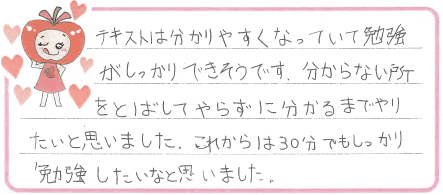 テキストは分かりやすくなっていて勉強
がしっかりできそうです。分からない所
をとばしてやらずに分かるまでやり
たいと思いました。これからは30分でもしっかり
勉強したいなと思いました。